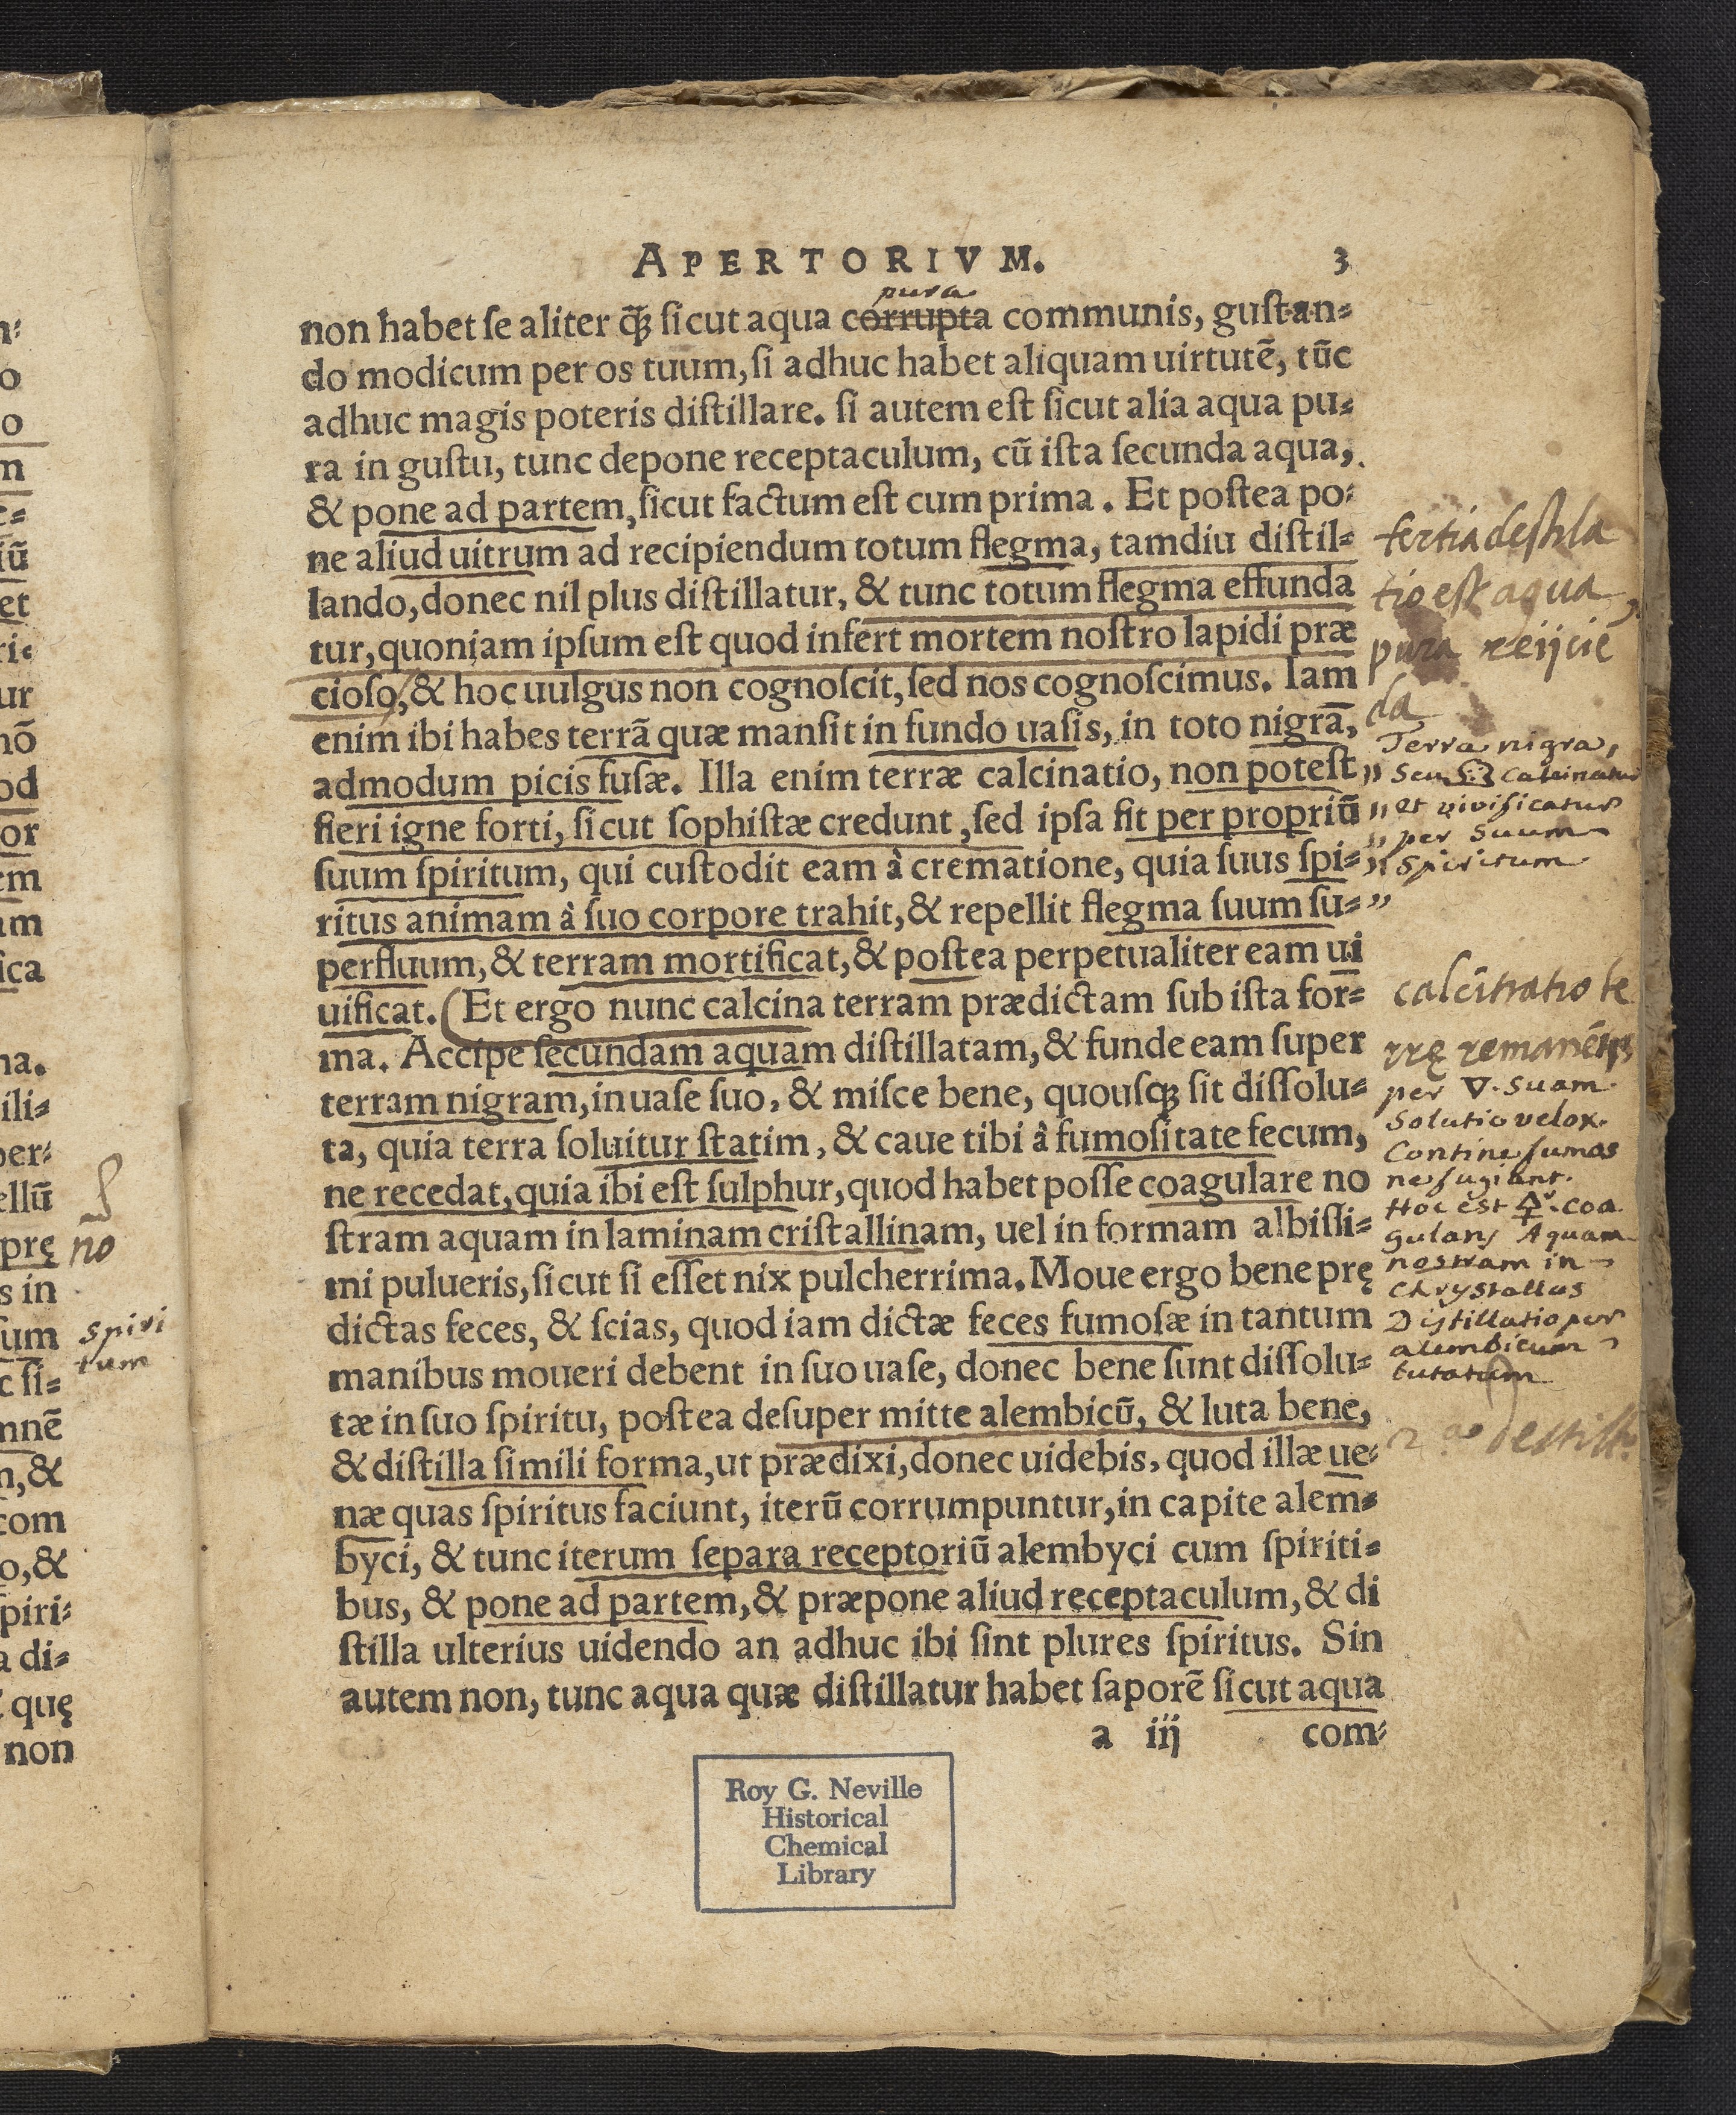 n:
o
o
m
e=
iũ
et
ri.
ur
nõ
od
or
em
am
ica
na.
ili=
per:
ellũ
prę
s in
sum
c si=
mnẽ
n,&
com
o,&
piri:
a di=
quę
non
no
spiri
tum
APERTORIVM. 3
pura
non habet se aliter q̃ꝫ sicut aqua corrupta communis, gustan=
do modicum per os tuum, si adhuc habet aliquam uirtutẽ, tũc
adhuc magis poteris distillare. si autem est sicut alia aqua pu=
ra in gustu, tunc depone receptaculum, cũ ista secunda aqua,
& pone ad partem, sicut factum est cum prima. Et postea po=
ne aliud uitrum ad recipiendum totum flegma, tamdiu distil=
lando, donec nil plus distillatur, & tunc totum flegma effunda
tur, quoniam ipsum est quod infert mortem nostro lapidi præ
cioso, & hoc uulgus non cognoscit, sed nos cognoscimus. Iam
enim ibi habes terrã quæ mansit in fundo uasis, in toto nigrã,
admodum picis fusæ. Illa enim terræ calcinatio, non potest
fieri igne forti, sicut sophistæ credunt, sed ipsa fit per propriũ
suum spiritum, qui custodit eam à crematione, quia suus spi=
ritus animam à suo corpore trahit, & repellit flegma suum su=
perfluum, & terram mortificat, & postea perpetualiter eam ui
uificat. (Et ergo nunc calcina terram prædictam sub ista for=
ma. Accipe secundam aquam distillatam, & funde eam super
terram nigram, in uase suo, & misce bene, quousqꝫ sit dissolu=
ta, quia terra soluitur statim, & caue tibi â fumositate fecum,
ne recedat, quia ibi est sulphur, quod habet posse coagulare no
stram aquam in laminam cristallinam, uel in formam albissi=
mi pulueris, sicut si esset nix pulcherrima. Moue ergo bene prę
dictas feces, & scias, quod iam dictæ feces fumosæ in tantum
manibus moueri debent in suo uase, donec bene sunt dissolu=
tæ in suo spiritu, postea desuper mitte alembicũ, & luta bene,
& distilla simili forma, ut prædixi, donec uidebis, quod illæ ue=
næ quas spiritus faciunt, iterũ corrumpuntur, in capite alem=
byci, & tunc iterum separa receptoriũ alembyci cum spiriti=
bus, & pone ad partem, & præpone aliud receptaculum, & di
stilla ulterius uidendo an adhuc ibi sint plures spiritus. Sin
autem non, tunc aqua quæ distillatur habet saporẽ sicut aqua
a iij com=
tertia destila
tio est aqua
pura reijcie
da
Terra nigra,
seu calcinatur
et vivificatur
per suum
spiritum
calcinatio te
rrę remanẽtis
per 🜄. suam.
Solutio velox.
Contine fumos
ne fugiant.
Hoc est 🜍r. coa
gulans Aquam
nostram in
Chrystallus
Distillatio per
alembicum
lutatum
2ao destill
Roy G. Neville
Historical
Chemical
Library